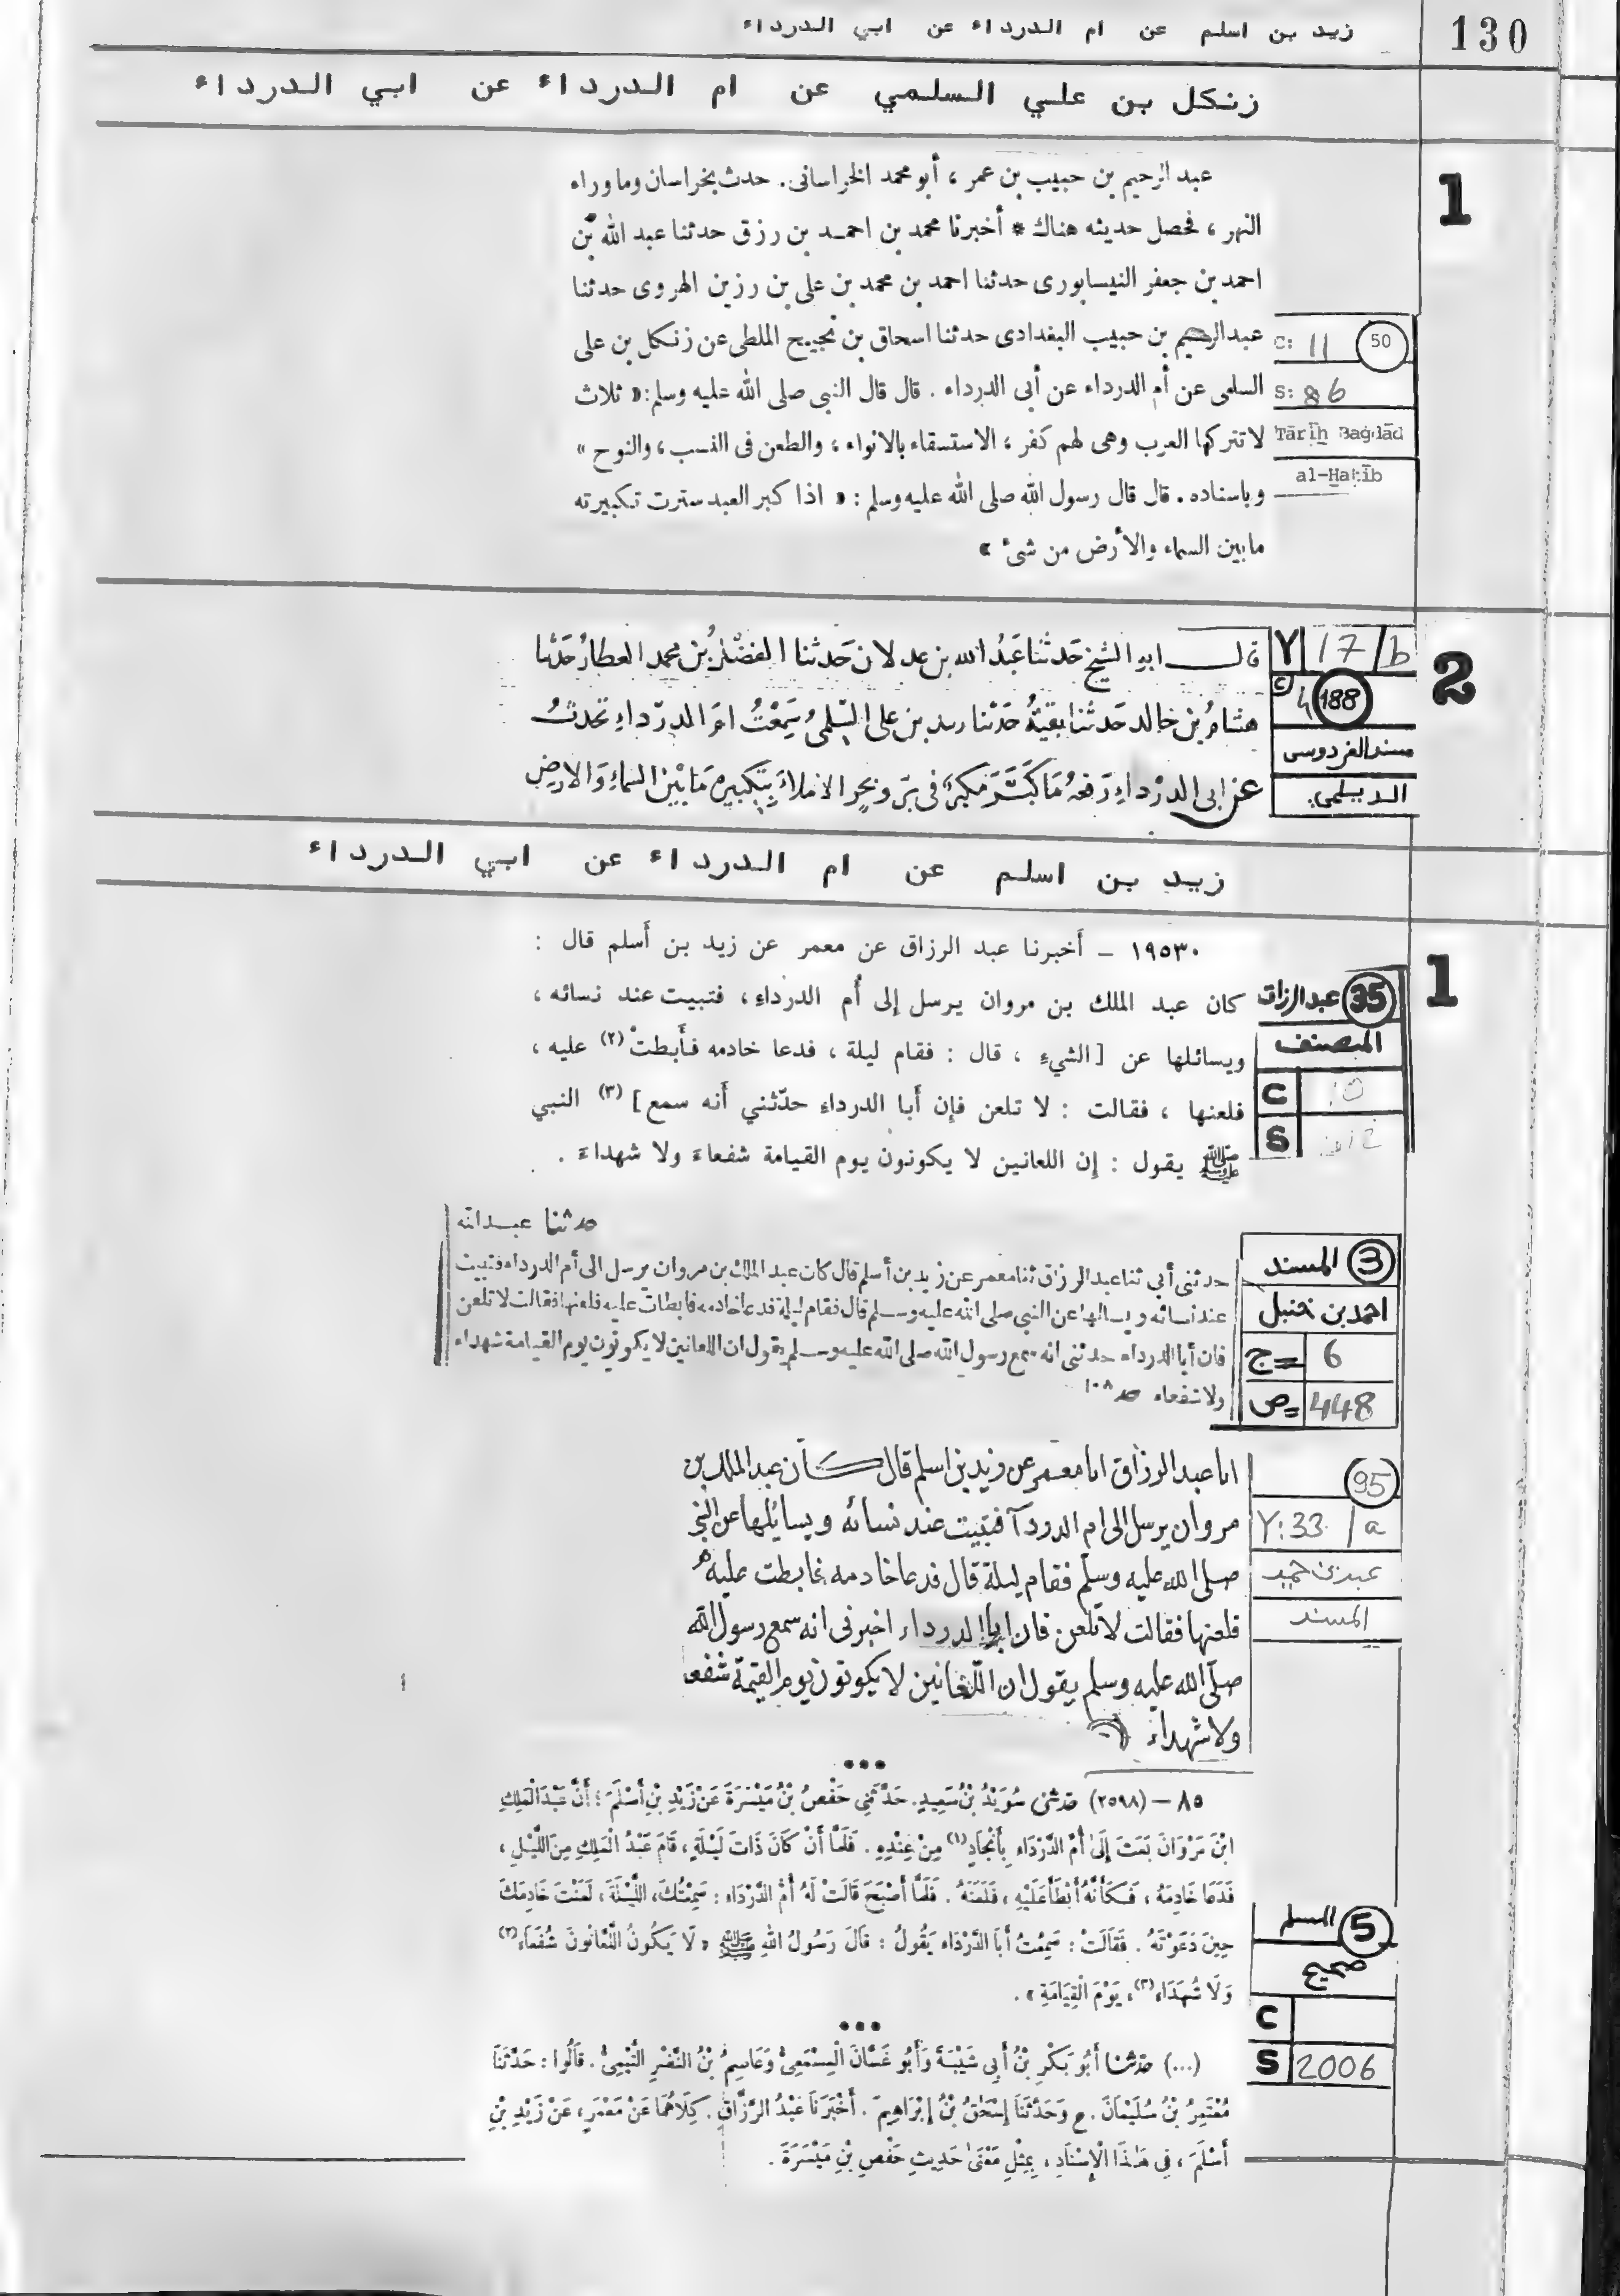 130
زيد بن اسلم عن ام الدرداء عن ابي الدرداء
زنكل بن علي السلمي عن ام الدرداء عن ابي الدرداء
1
عبد الرحيم بن حبيب بن عمر ، أبو محمد الخراسانى . حدث بخراسان وما وراء
النهر ، فحصل حديثه هناك * أخبرنا محمد بن احمد بن رزق حدثنا عبد الله بن
احمد بن جعفر النيسابورى حدثنا احمد بن محمد بن على بن رزين الهروى حدثنا
عبد الرحيم بن حبيب البغدادى حدثنا اسحاق بن نجيح الملطى عن زنكل بن على
السلمى عن أم الدرداء عن أبى الدرداء . قال قال النبى صلى الله عليه وسلم : « ثلاث
لا تتركها العرب وهى لهم كفر ، الاستسقاء بالانواء ، والطعن فى النسب ، والنوح »
وباسناده . قال قال رسول الله صلى الله عليه وسلم : « اذا كبر العبد سترت تكبيرته
ما بين السماء والأرض من شىء »
C: 11 50
S: 86
Tārīḫ Baġdād
al-Ḫaṭīb
2
قال ابو الشيخ حَدثنا عَبدُ الله بن عدلان حَدثنا الفضْلُ بنُ محمد العطارُ حَدثنا
هشامُ بن خالد حَدثنا بقيّةُ حَدّثنا رىد بن على السّلمىُ سَمِعْتُ امَّ الدرداءِ تحدثُ
عن ابى الدرْداءِ رَفعهُ مَا كَبَّرَ مُكبِّرٌ فى برّ وبحرٍ الا ملأَ بتكبيرهِ مَا بيْن السَّماءِ وَالارضِ
Y 17/b
C 4 188
مسند الفردوسى
الديلمي
زيد بن اسلم عن ام الدرداء عن ابي الدرداء
1
١٩٥٣٠ – أَخبرنا عبد الرزاق عن معمر عن زيد بن أَسلم قال :
كان عبد الملك بن مروان يرسل إلى أُم الدرداءِ ، فتبيت عند نسائه ،
ويسائلها عن [ الشيءِ ، قال : فقام ليلة ، فدعا خادمه فأَبطتْ (٢) عليه ،
فلعنها ، فقالت : لا تلعن فإن أَبا الدرداءِ حدّثني أَنه سمع ] (٣) النبي
ﷺ يقول : إن اللعانين لا يكونون يوم القيامة شفعاءَ ولا شهداءَ .
35 عبد الرزاق
المصنف
C 10
S 412
حدثنا عبدالله
حدثنى أبى ثنا عبد الرزاق ثنا معمر عن زيد بن أسلم قال كان عبد الملك بن مروان يرسل الى أم الدرداء فتبيت
عند نسائه ويسالها عن النبى صلى الله عليه وسلم قال فقام ليلة فدعا خادمه فابطات عليه فلعنها فقالت لا تلعن
فان أبا الدرداء حدثنى انه سمع رسول الله صلى الله عليه وسلم يقول ان اللعانين لا يكونون يوم القيامة شهداء
ولا شفعاء صد ١٠٨
3 المسند
احمد بن حنبل
ج= 6
ص= 448
انا عبد الرزاق انا معمر عن زيد بن اسلم قال كان عبد الملك بن
مروان يرسل الى ام الدردآ فتبيت عند نسائه ويسايلها عن النبي
صلى الله عليه وسلم فقام ليلة قال فدعا خادمه فابطت عليه
فلعنها فقالت لا تلعن فان ابا الدرداء اخبرنى انه سمع رسول الله
صلى الله عليه وسلم يقول ان اللعانين لا يكونون يوم القيمة شفعا
ولا شهداء
95
Y: 33 / a
عبد بن حميد
المسند
٨٥ – (٢٥٩٨) حدثنى سُوَيْدُ بْنُ سَعِيدٍ . حَدَّثَنِي حَفْصُ بْنُ مَيْسَرَةَ عَنْ زَيْدِ بْنِ أَسْلَمَ ؛ أَنَّ عَبْدَ الْمَلِكِ
ابْنَ مَرْوَانَ بَعَثَ إِلَىٰ أُمِّ الدَّرْدَاءِ بِأَنْجَادٍ (١) مِنْ عِنْدِهِ . فَلَمَّا أَنْ كَانَ ذَاتَ لَيْلَةٍ ، قَامَ عَبْدُ الْمَلِكِ مِنَ اللَّيْلِ ،
فَدَعَا خَادِمَهُ ، فَكَأَنَّهُ أَبْطَأَ عَلَيْهِ ، فَلَعَنَهُ . فَلَمَّا أَصْبَحَ قَالَتْ لَهُ أُمُّ الدَّرْدَاءِ : سَمِعْتُكَ ، اللَّيْلَةَ ، لَعَنْتَ خَادِمَكَ
حِينَ دَعَوْتَهُ . فَقَالَتْ : سَمِعْتُ أَبَا الدَّرْدَاءِ يَقُولُ : قَالَ رَسُولُ اللهِ ﷺ « لَا يَكُونُ اللَّعَّانُونَ شُفَعَاءَ (٢)
وَلَا شُهَدَاءَ (٣) ، يَوْمَ الْقِيَامَةِ » .
5 المسلم
صحيح
C
S 2006
(...) حدثنا أَبُو بَكْرِ بْنُ أَبِي شَيْبَةَ وَأَبُو غَسَّانَ الْمِسْمَعِيُّ وَعَاصِمُ بْنُ النَّضْرِ التَّيْمِيُّ . قَالُوا : حَدَّثَنَا
مُعْتَمِرُ بْنُ سُلَيْمَانَ . ح وَحَدَّثَنَا إِسْحَاقُ بْنُ إِبْرَاهِيمَ . أَخْبَرَنَا عَبْدُ الرَّزَّاقِ . كِلَاهُمَا عَنْ مَعْمَرٍ ، عَنْ زَيْدِ بْنِ
أَسْلَمَ ، فِي هَٰذَا الْإِسْنَادِ ، بِمِثْلِ مَعْنَىٰ حَدِيثِ حَفْصِ بْنِ مَيْسَرَةَ .